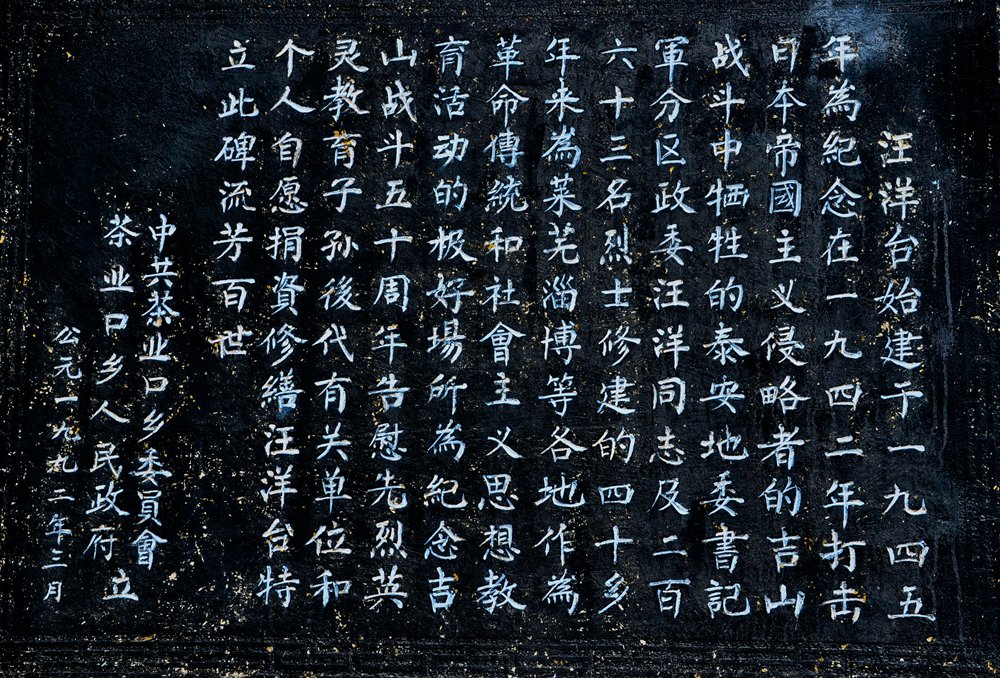 汪洋台始建于一九四五
年為紀念在一九四二年打击
日本帝國主义侵略者的吉山
战斗中牺牲的泰安地委書記
軍分区政委汪洋同志及二百
六十三名烈士修建的四十多
年来為莱芜淄博等各地作為
革命傳統和社會主义思想教
育活动的极好場所為紀念吉
山战斗五十周年告慰先烈英
灵教育子孙後代有关单位和
个人自愿捐資修缮汪洋台特
立此碑流芳百世
中共茶业口乡委員會
茶业口乡人民政府立
公元一九九二年三月